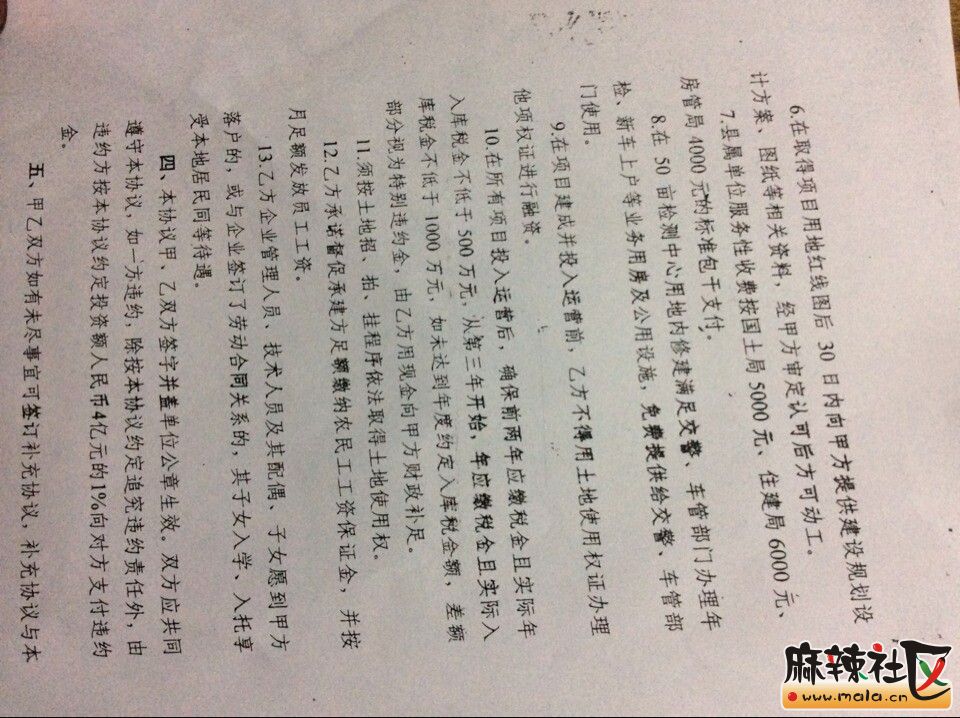 6.在取得项目用地红线图后 30 日内向甲方提供建设规划设
计方案、图纸等相关资料，经甲方审定认可后方可动工。
7.县属单位服务性收费按国土局 5000 元、住建局 6000 元、
房管局 4000 元的标准包干支付。
8.在 50 亩检测中心用地内修建满足交警、车管部门办理年
检、新车上户等业务用房及公用设施、免费提供给交警、车管部
门使用。
9.在项目建成并投入运营前，乙方不得用土地使用权证办理
他项权证进行融资。
10.在所有项目投入运营后，确保前两年应缴税金且实际年
入库税金不低于 500 万元，从第三年开始，年应缴税金且实际入
库税金不低于 1000 万元，如未达到年度约定入库税金额，差额
部分视为特别违约金，由乙方用现金向甲方财政补足。
11.须按土地招、拍、挂程序依法取得土地使用权。
12.乙方承诺督促承建方足额缴纳农民工工资保证金，并按
月足额发放员工工资。
13.乙方企业管理人员、技术人员及其配偶、子女愿到甲方
落户的，或与企业签订了劳动合同关系的，其子女入学、入托享
受本地居民同等待遇。
四、本协议甲、乙双方签字并盖单位公章生效。双方应共同
遵守本协议，如一方违约，除按本协议约定追究违约责任外，由
违约方按本协议约定投资额人民币4亿元的1%向对方支付违约
金。
五、甲乙双方如有未尽事宜可签订补充协议，补充协议与本
麻辣社区
www.mala.cn